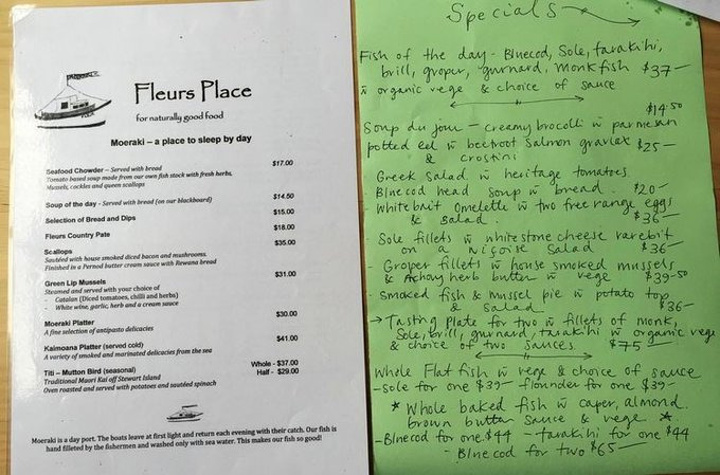 Fleurs Place
for naturally good food
Moeraki – a place to sleep by day
Seafood Chowder – Served with bread $17.00
Tomato based soup made from our own fish stock with fresh herbs,
Mussels, cockles and queen scallops
Soup of the day - Served with bread (on our blackboard) $14.50
Selection of Bread and Dips $15.00
Fleurs Country Pate $18.00
Scallops $35.00
Sautéed with house smoked diced bacon and mushrooms.
Finished in a Pernod butter cream sauce with Rewana bread
Green Lip Mussels $31.00
Steamed and served with your choice of
- Catalan (Diced tomatoes, chilli and herbs)
- White wine, garlic, herb and a cream sauce
Moeraki Platter $30.00
A fine selection of antipasto delicacies
Kaimoana Platter (served cold) $41.00
A variety of smoked and marinated delicacies from the sea
Titi – Mutton Bird (seasonal) Whole - $37.00
Traditional Maori Kai off Stewart Island Half - $29.00
Oven roasted and served with potatoes and sautéed spinach
Moeraki is a day port. The boats leave at first light and return each evening with their catch. Our fish is
hand filleted by the fishermen and washed only with sea water. This makes our fish so good!
Specials
Fish of the day - Bluecod, Sole, tarakihi,
brill, groper, gurnard, monkfish $37-
w̄ organic vege & choice of sauce
$14.50
Soup du jour - creamy brocolli w̄ parmesan
potted eel w̄ beetroot salmon gravlax $25-
& crostini
Greek Salad w̄ heritage tomatoes
Bluecod head soup w̄ bread. $20-
Whitebait Omelette w̄ two free range eggs
& salad. $36-
- Sole fillets w̄ whitestone cheese rarebit
on a niçoise salad $36-
- Groper fillets w̄ house smoked mussels
& herb butter w̄ vege $39-50
- Smoked fish & mussel pie w̄ potato top
& salad $36-
→ Tasting plate for two w̄ fillets of monk,
Sole, brill, gurnard, tarakihi w̄ organic vege
& choice of two sauces $75-
Whole Flat fish w̄ vege & choice of sauce
- Sole for one $39- flounder for one $39-
* Whole baked fish w̄ caper, almond.
brown butter sauce & vege *
- Bluecod for one $44 - tarakihi for one $44
- Bluecod for two $65-